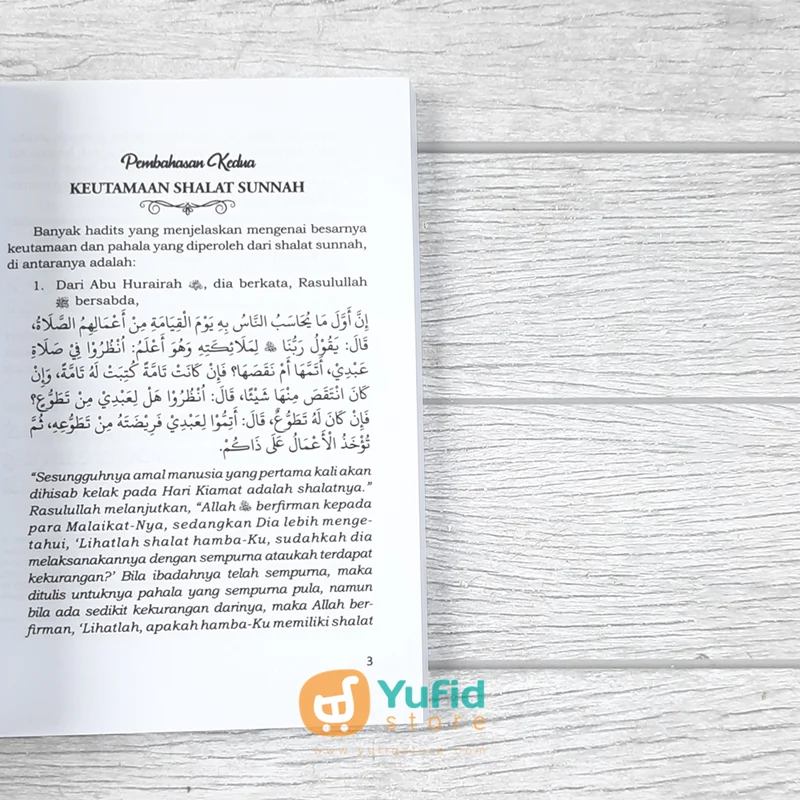 Pembahasan Kedua
KEUTAMAAN SHALAT SUNNAH
Banyak hadits yang menjelaskan mengenai besarnya
keutamaan dan pahala yang diperoleh dari shalat sunnah,
di antaranya adalah:
1. Dari Abu Hurairah ﷺ, dia berkata, Rasulullah
ﷺ bersabda,
إِنَّ أَوَّلَ مَا يُحَاسَبُ النَّاسُ بِهِ يَوْمَ الْقِيَامَةِ مِنْ أَعْمَالِهِمُ الصَّلَاةُ،
قَالَ: يَقُوْلُ رَبُّنَا ﷻ لِمَلَائِكَتِهِ وَهُوَ أَعْلَمُ: اُنْظُرُوْا فِيْ صَلَاةِ
عَبْدِيْ، أَتَمَّهَا أَمْ نَقَصَهَا؟ فَإِنْ كَانَتْ تَامَّةً كُتِبَتْ لَهُ تَامَّةً، وَإِنْ
كَانَ انْتَقَصَ مِنْهَا شَيْئًا، قَالَ: اُنْظُرُوْا هَلْ لِعَبْدِيْ مِنْ تَطَوُّعٍ؟
فَإِنْ كَانَ لَهُ تَطَوُّعٌ، قَالَ: أَتِمُّوْا لِعَبْدِيْ فَرِيْضَتَهُ مِنْ تَطَوُّعِهِ، ثُمَّ
تُؤْخَذُ الْأَعْمَالُ عَلَى ذَاكُمْ.
“Sesungguhnya amal manusia yang pertama kali akan
dihisab kelak pada Hari Kiamat adalah shalatnya.”
Rasulullah melanjutkan, “Allah ﷻ berfirman kepada
para Malaikat-Nya, sedangkan Dia lebih menge-
tahui, ‘Lihatlah shalat hamba-Ku, sudahkah dia
melaksanakannya dengan sempurna ataukah terdapat
kekurangan?’ Bila ibadahnya telah sempurna, maka
ditulis untuknya pahala yang sempurna pula, namun
bila ada sedikit kekurangan darinya, maka Allah ber-
firman, ‘Lihatlah, apakah hamba-Ku memiliki shalat
3
Yufid
store
www.yufidstore.com